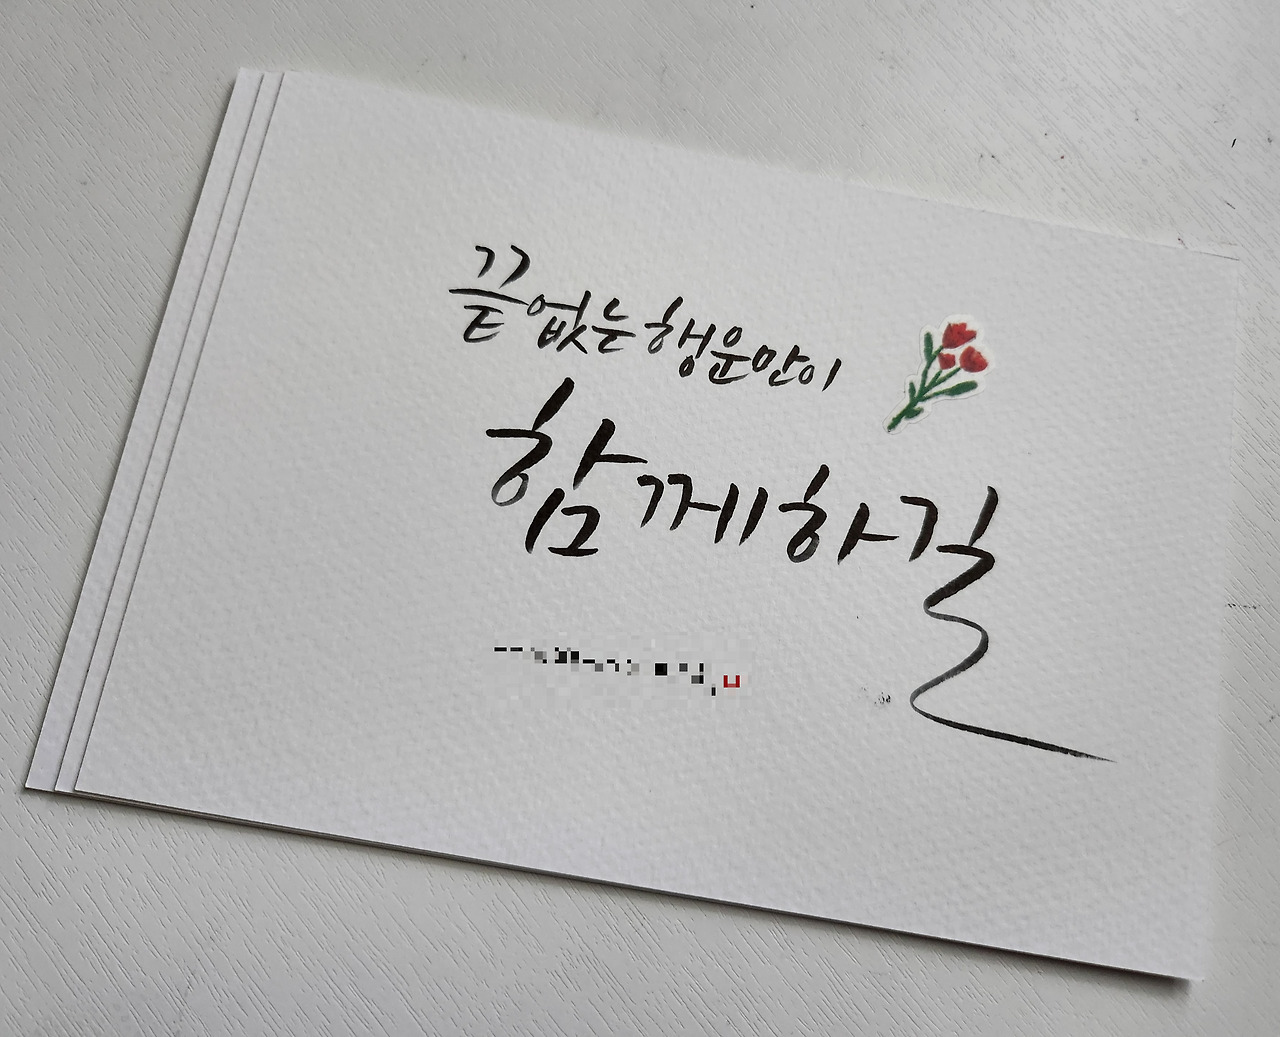 끝없는 행운만이
함께하길